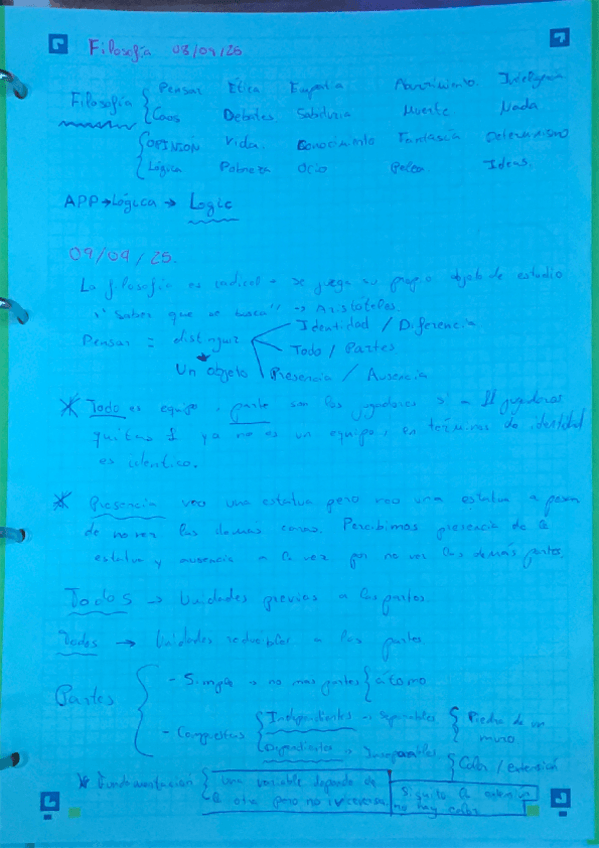 Filosofía 03/04/25.
Pensar Ética Empatía Aburrimiento Inteligencia
Filosofía
Caos Debates Sabiduría Muerte Nada
OPINIÓN Vida Conocimiento Fantasía Determinismo
Lógica Pobreza Ocio Pelea Ideas.
APP → Lógica → Logic
09/04/25.
La filosofía es radical → se juega su propio objeto de estudio
"Saber que se busca" → Aristóteles.
Identidad / Diferencia
Pensar = distinguir
Todo / Partes
Un objeto Presencia / Ausencia
Todo es equipo, parte son los jugadores si a 11 jugadores
quitas 1 ya no es un equipo, en términos de identidad
es identico.
Presencia veo una estatua pero veo una estatua a pesar
de no ver las demas caras. Percibimos presencia de la
estatua y ausencia a la vez por no ver las demás partes.
Todos → Unidades previas a las partes.
Todos → Unidades reducibles a las partes
Partes
- Simple → no mas partes { átomo
- Compuestas
Independientes → separables { Piedra de un muro
Dependientes → Inseparables { Color / extensión
Fundamentación { una variable depende de
la otra pero no viceversa
Si quito la extension
no hay color